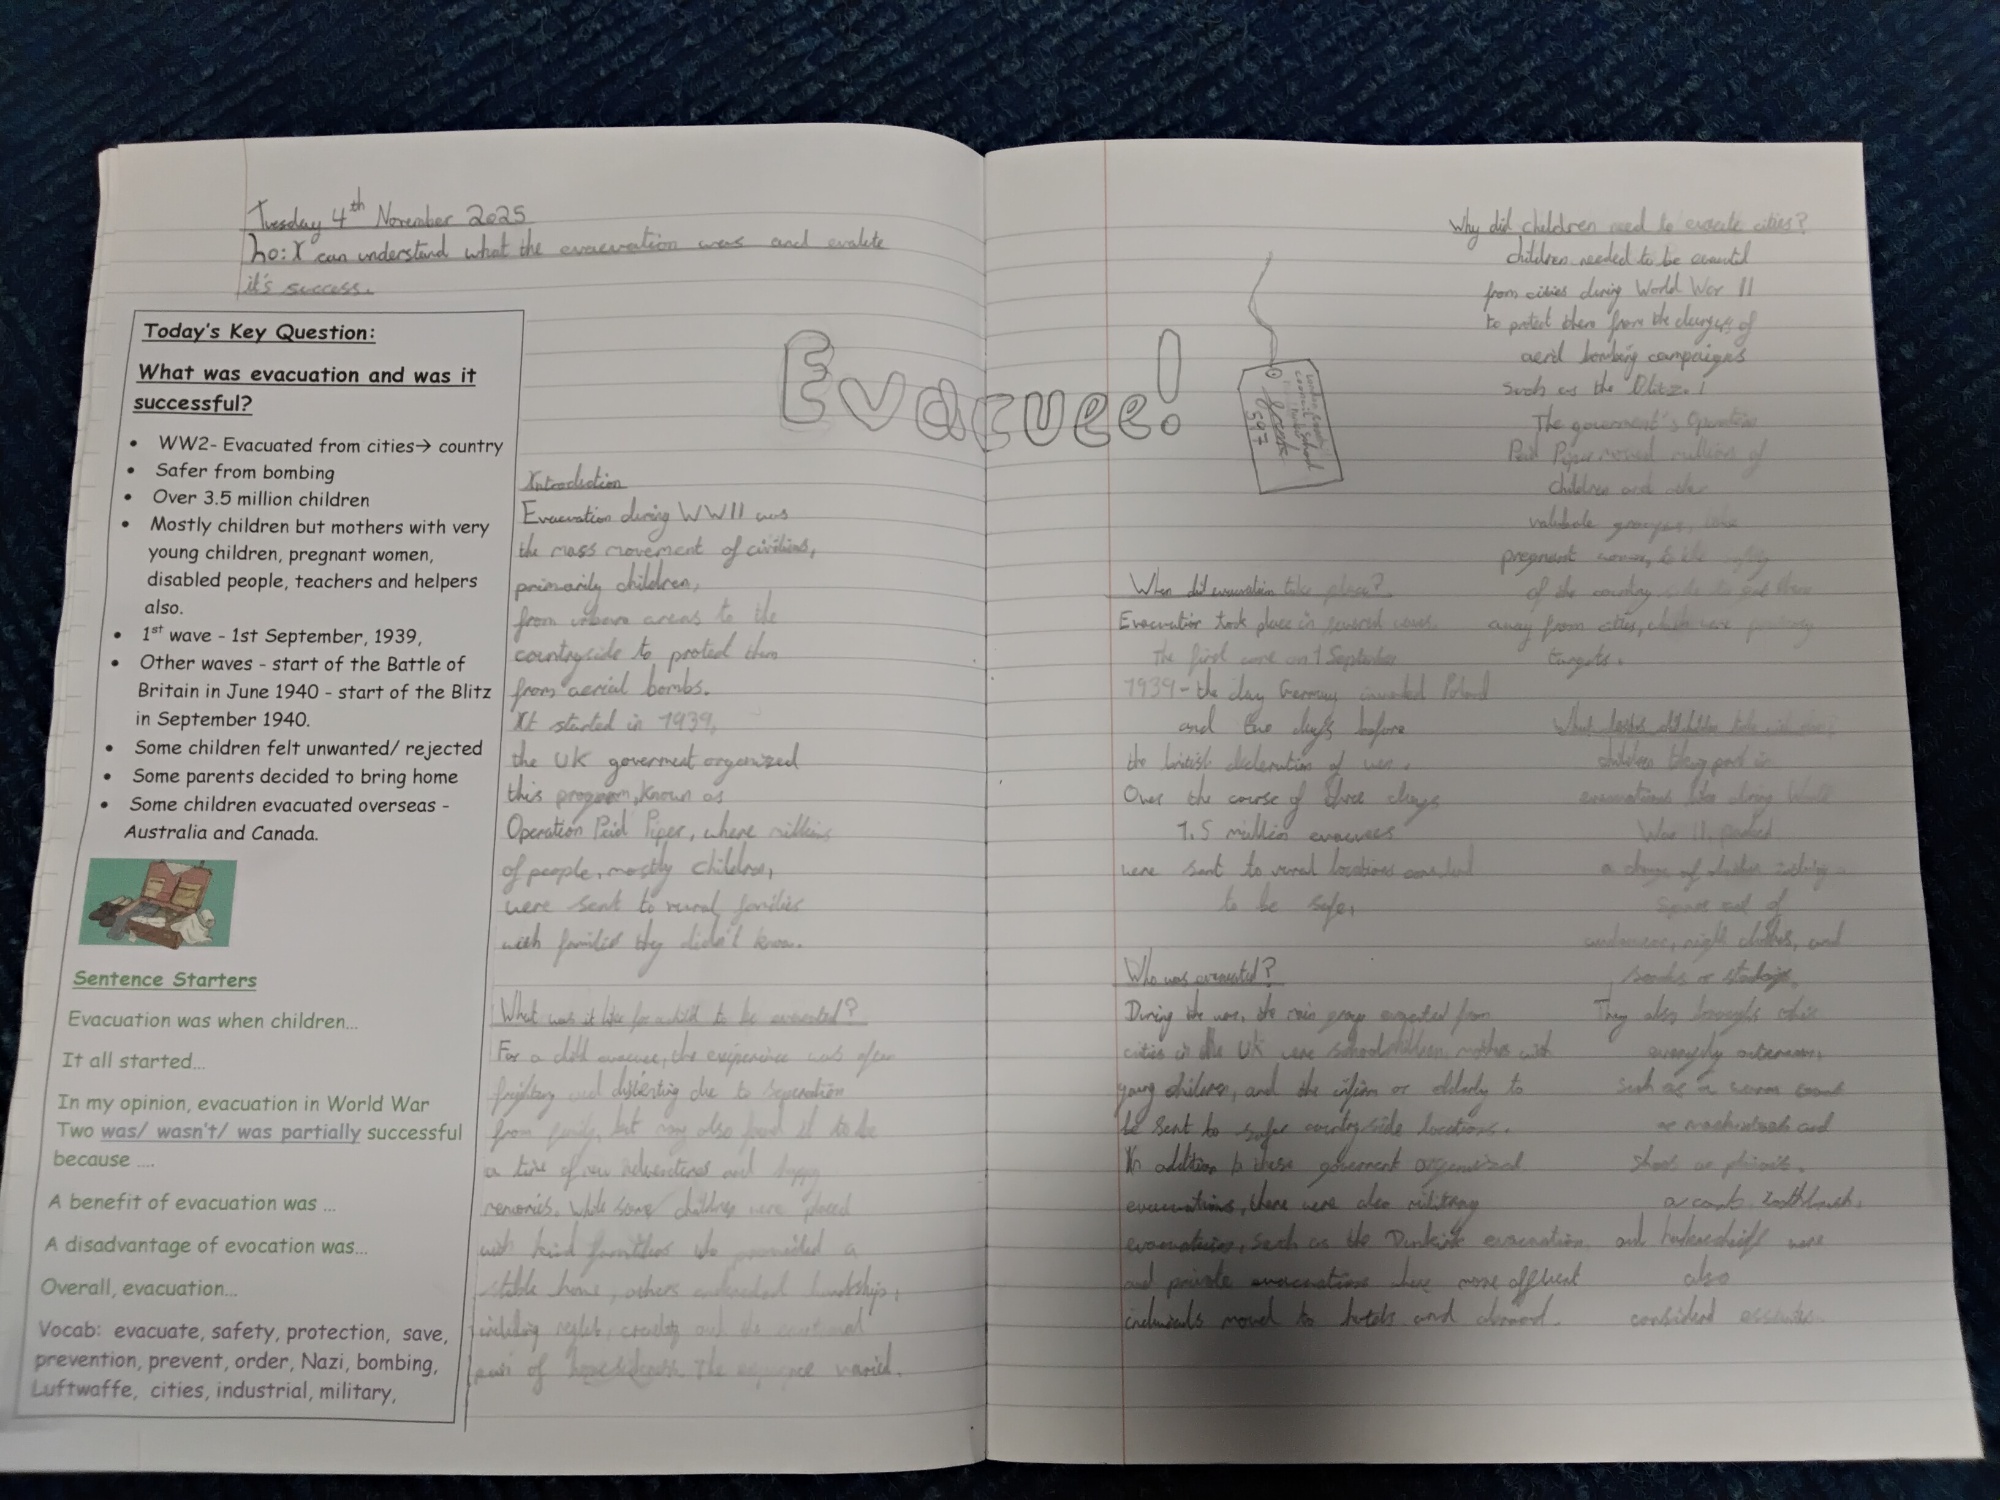 Tuesday 4th November 2025
Lo: I can understand what the evacuation was and evalute
it's success.
Today's Key Question:
What was evacuation and was it
successful?
• WW2- Evacuated from cities→ country
• Safer from bombing
• Over 3.5 million children
• Mostly children but mothers with very
young children, pregnant women,
disabled people, teachers and helpers
also.
• 1st wave - 1st September, 1939,
• Other waves - start of the Battle of
Britain in June 1940 - start of the Blitz
in September 1940.
• Some children felt unwanted/ rejected
• Some parents decided to bring home
• Some children evacuated overseas -
Australia and Canada.
Sentence Starters
Evacuation was when children...
It all started...
In my opinion, evacuation in World War
Two was/ wasn't/ was partially successful
because ....
A benefit of evacuation was ...
A disadvantage of evocation was...
Overall, evacuation...
Vocab: evacuate, safety, protection, save,
prevention, prevent, order, Nazi, bombing,
Luftwaffe, cities, industrial, military,
Evacuee!
Introdiction
Evacuation during WWII was
the mass movement of civilians,
primarily children,
from urban areas to the
countryside to protect them
from aerial bombs.
It started in 1939,
the UK goverment organized
this program, known as
Operation Peid Piper, where millions
of people, mostly children,
were sent to rural families
with families they didn't know.
What was it like for a child to be evacuated?
For a child evacuee, the was often
and due to seperation
from family, but may also found it to be
a time of new adventures and happy
memories. While some children were placed
with kind who provided a
stable home, others hardship,
including cruelty and the emotional
of The varied.
London
council School
597
When did evacuation take place?
Evacuation took place in several waves.
The first wave on 1 September
1939 - the day Germany invaded Poland
and two days before
the british decleration of war.
Over the course of three days
1.5 million evacuees
were sent to rural locations
to be safe.
Who was evacuated?
During the war, the main group from
cities in the UK were schoolchildren, mothers with
young children, and the infirm or elderly to
be sent to safer countryside locations.
In addition to these goverment organized
evacuations, there were also military
evacuations, such as the Dunkirk evacuation,
and private evacuations where more affluent
moved to hotels and abroad.
Why did children need to cities?
children needed to be
from cities during World War II
to protect them from the of
bombing campaigns
such as the Blitz.
The goverment's Operation
Peid Piper moved millions of
children and other
like
pregnant women, to the safety
of the country side to get them
away from cities, which were
targets.
What did children take with them?
children
evacuations like during World
War II, packed
a change of clothes including
Spare set of
night clothes, and
socks or
They also brought other
such as a warm
or mackintosh and
shoes or
a comb, toothbrush,
and were
also